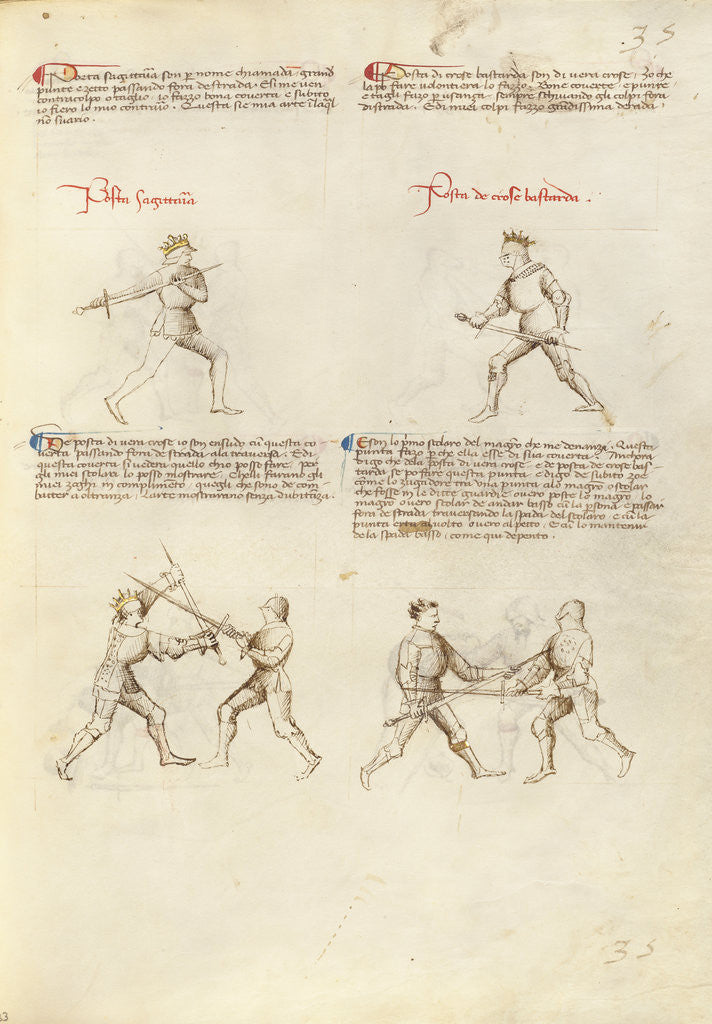 35
Posta sagittaria son per nome chiamada, grand
punte e zetto passando fora de strada. E si me ven
contra colpo o taglio, io fazzo bona coverta e subito
io fiero lo mio contrario. Questa sie mia arte in laqual
non svario.
Posta di crose bastarda son di vera crose, zo che
la po fare volontiera lo fazzo. Bone coverte e punte
e tagli fazo per usanza, sempre schivando gli colpi fora
di strada. E di miei colpi fazzo grandissima derada.
Posta Sagittaria
Posta de crose bastarda.
De posta di vera crose io son ensudo cum questa co-
verta passando fora de strada ala traversa. E di
questa coverta si vederà quello ch'io posso fare. Per
gli miei scolari lo posso mostrare. E helli faranno gli
miei zoghi in complimento, quegli che sono de com-
batter a oltranza, l'arte mostrarano senza dubitanza.
E son lo primo scolaro del magistro che me denanzi. Questa
punta fazo per che ella esse di sua coverta. Anchora
digo che dela posta di vera crose e de posta de crose bas-
tarda se po fare questa punta. e digo de subito zoe
come lo zugadore tra una punta alo magistro o scolar
che fosse in le ditte guardie overo poste lo magistro lo
magistro overo scolar de andar basso cum la persona e passar
fora de strada traversando la spada del scolaro e cum la
punta erta al volto overo al petto, e cum lo mantenir
de la spada basso, come qui depento.
35
33